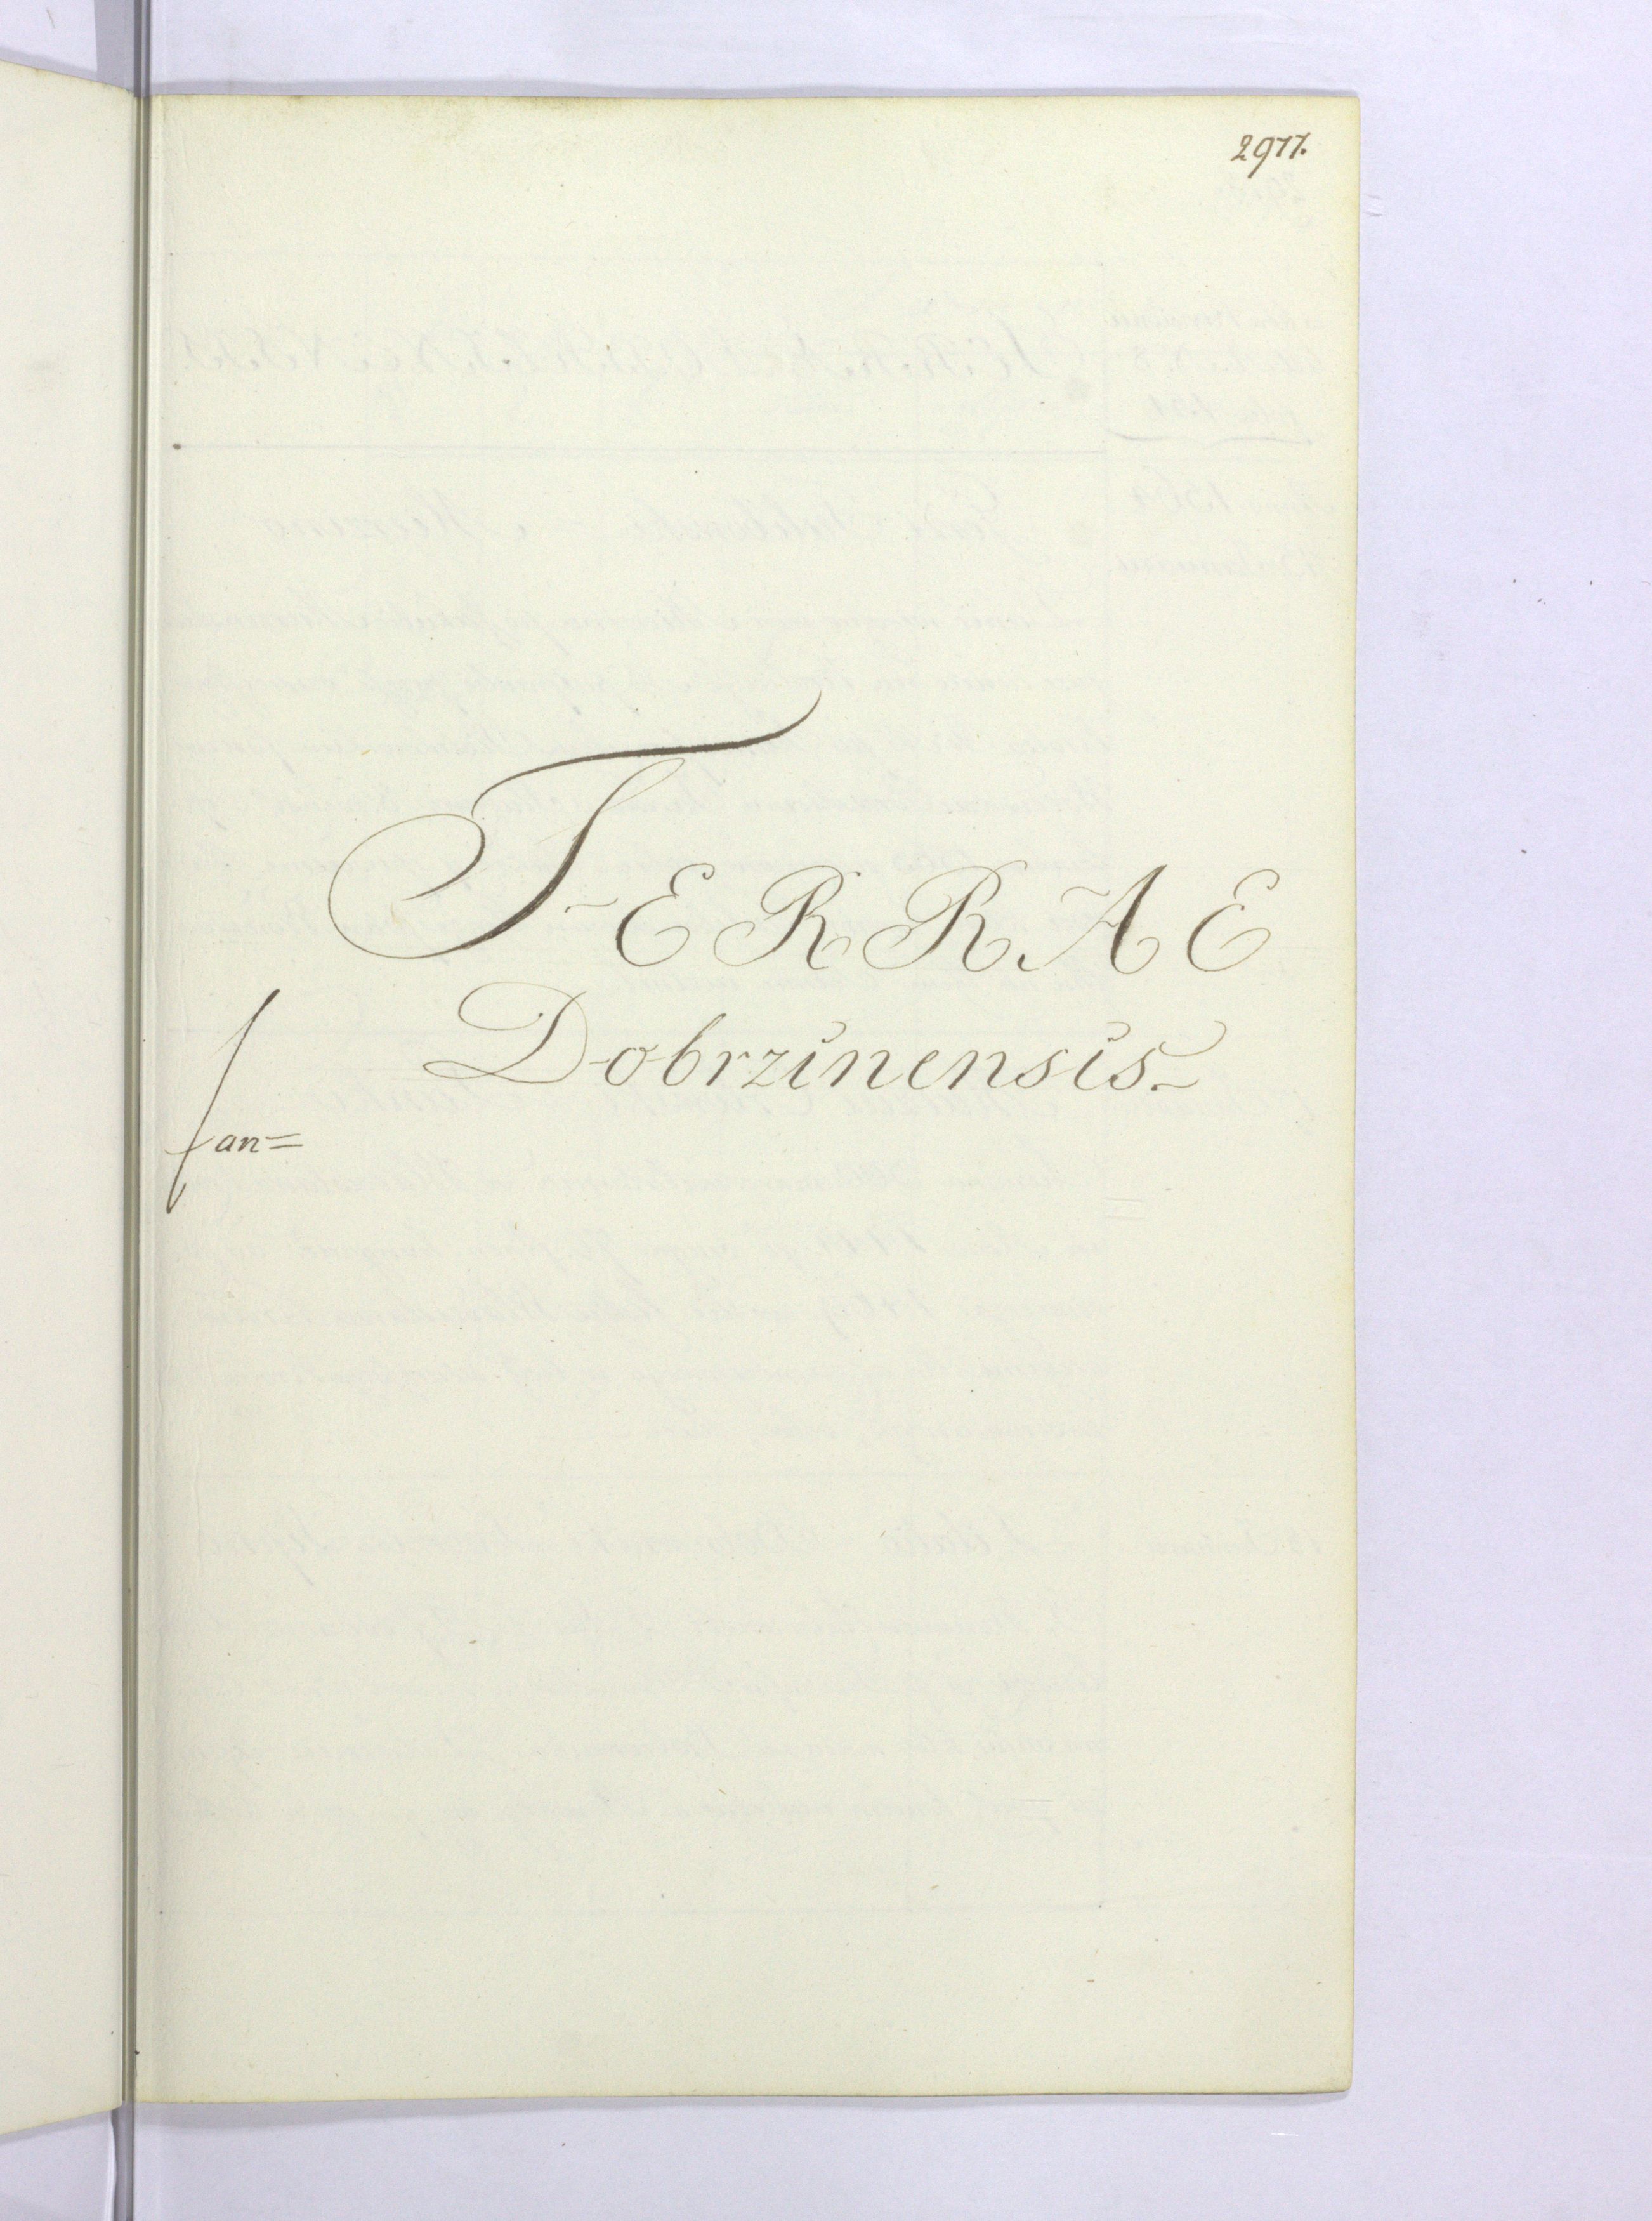 2977.
TERRAE
Dobrzinensis
fan=